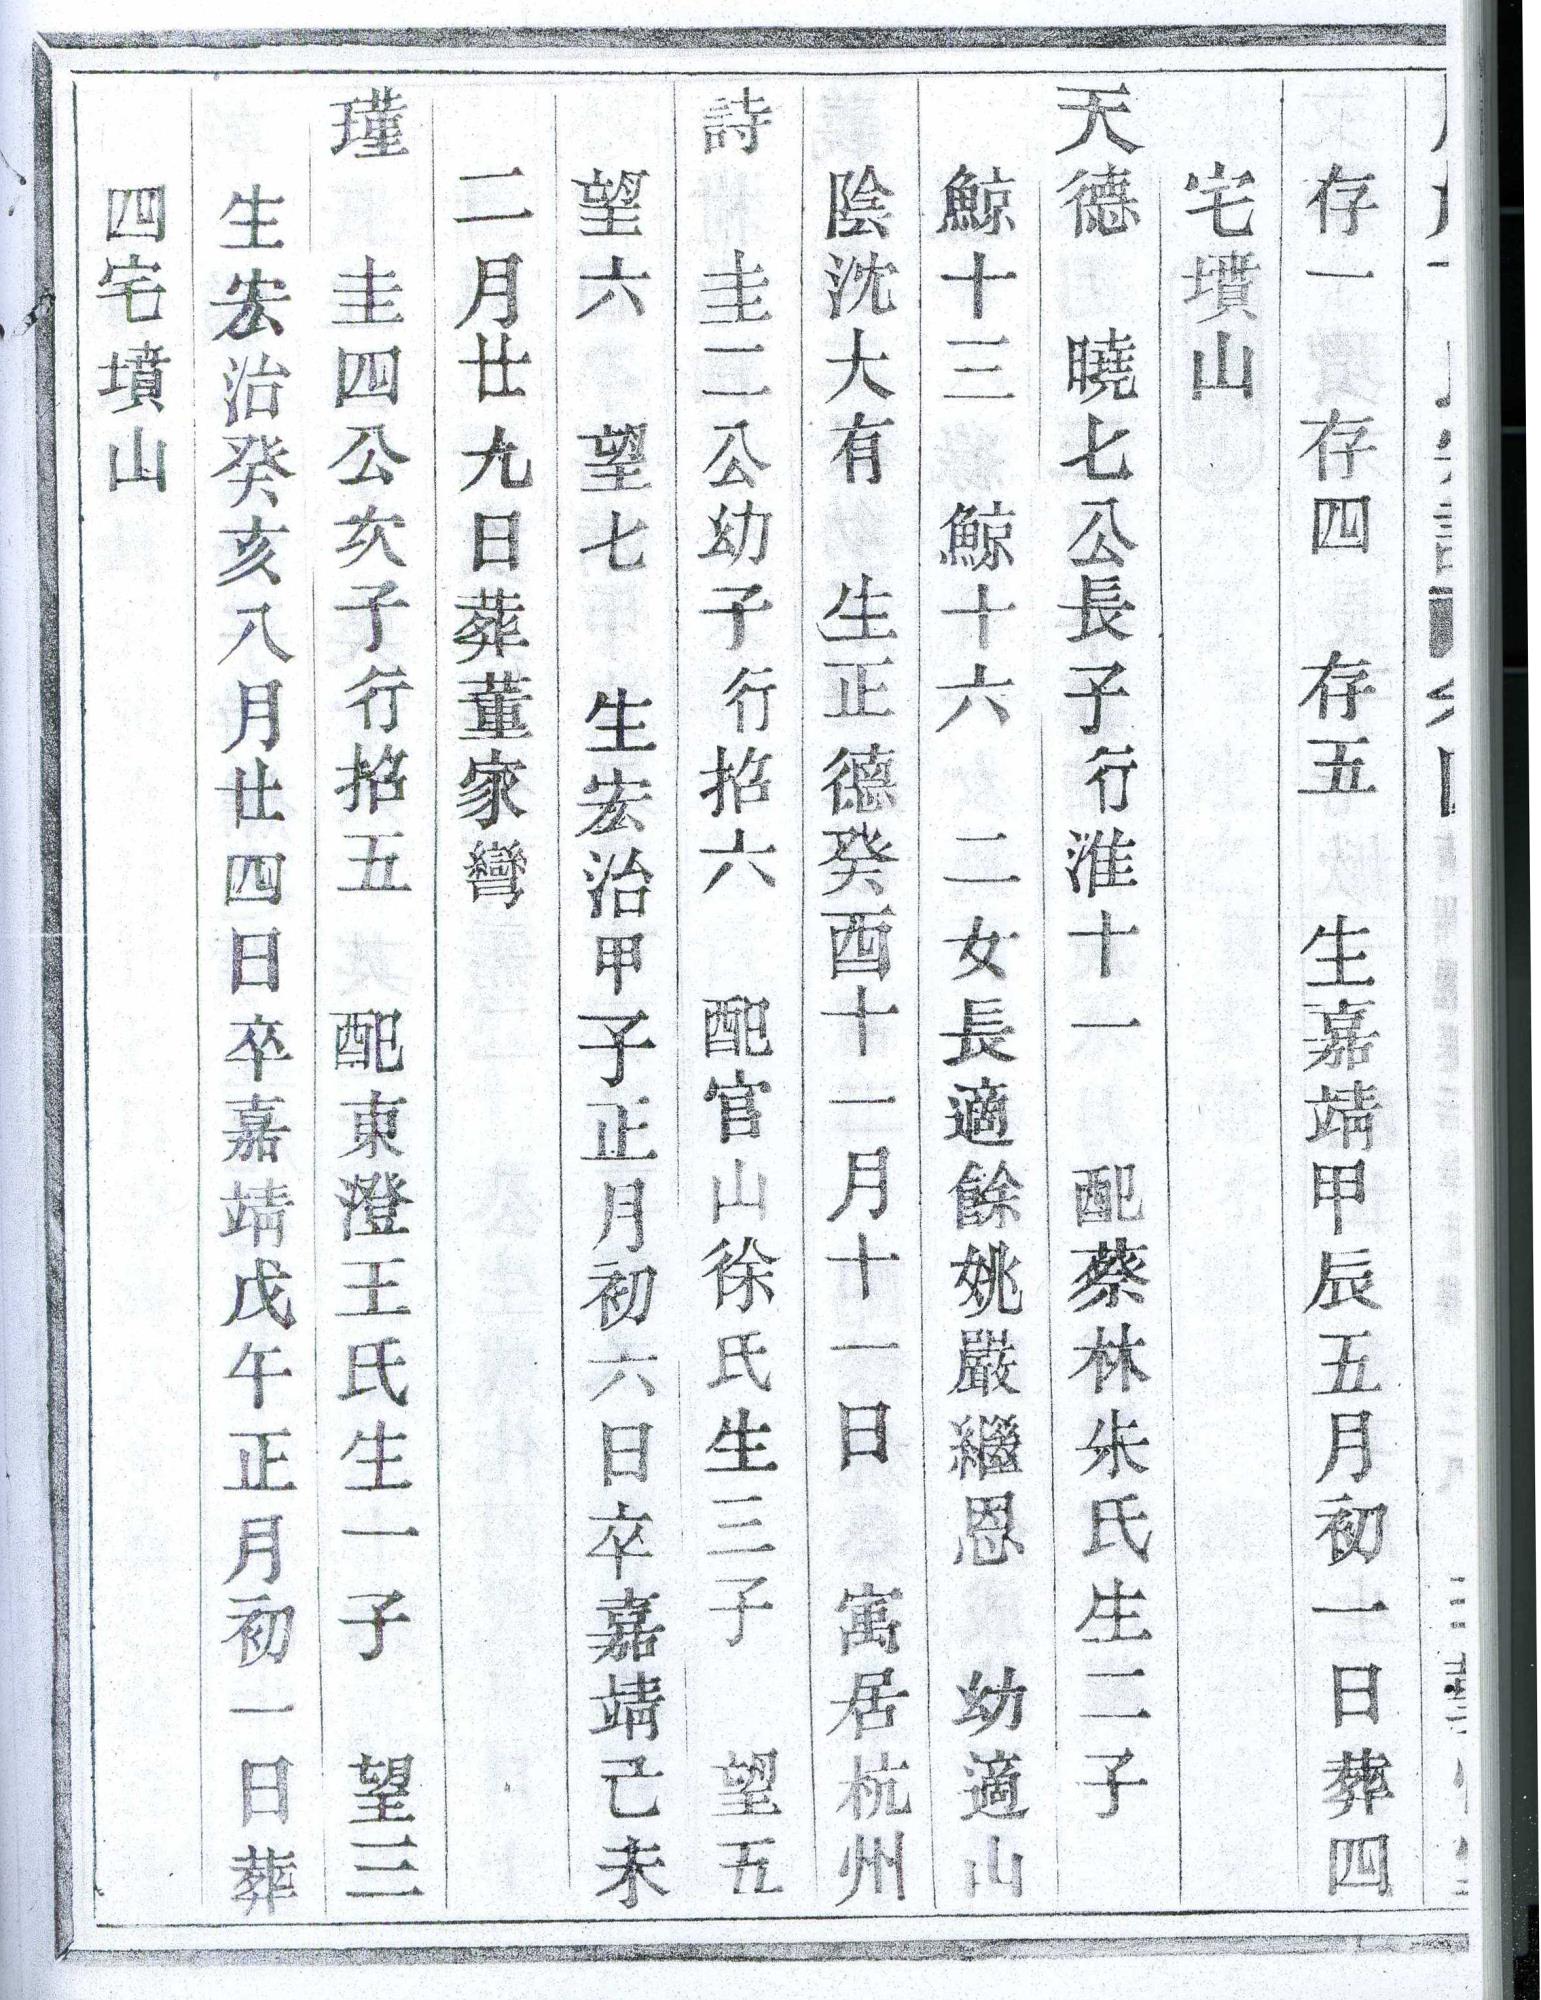 存一 存四 存五 生嘉靖甲辰五月初一日葬四
宅墳山
天德 曉七公長子行淮十一 配蔡林朱氏生二子
鯨十三 鯨十六 二女長適餘姚嚴繼恩 幼適山
陰沈大有 生正德癸酉十一月十一日 寓居杭州
詩 圭二公幼子行招六 配官山徐氏生三子 望五
望六 望七 生宏治甲子正月初六日卒嘉靖己未
二月廿九日葬董家彎
瑾 圭四公次子行招五 配東澄王氏生一子 望三
生宏治癸亥八月廿四日卒嘉靖戊午正月初一日葬
四宅墳山